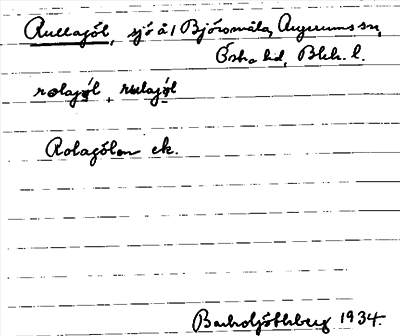 Rullagöl, sjö å/ Björsmåla, Augerums sn,
Östra hd, Blek. l.
rolagö̀l, rulagö̀l
Rolagölen ek.
1934.